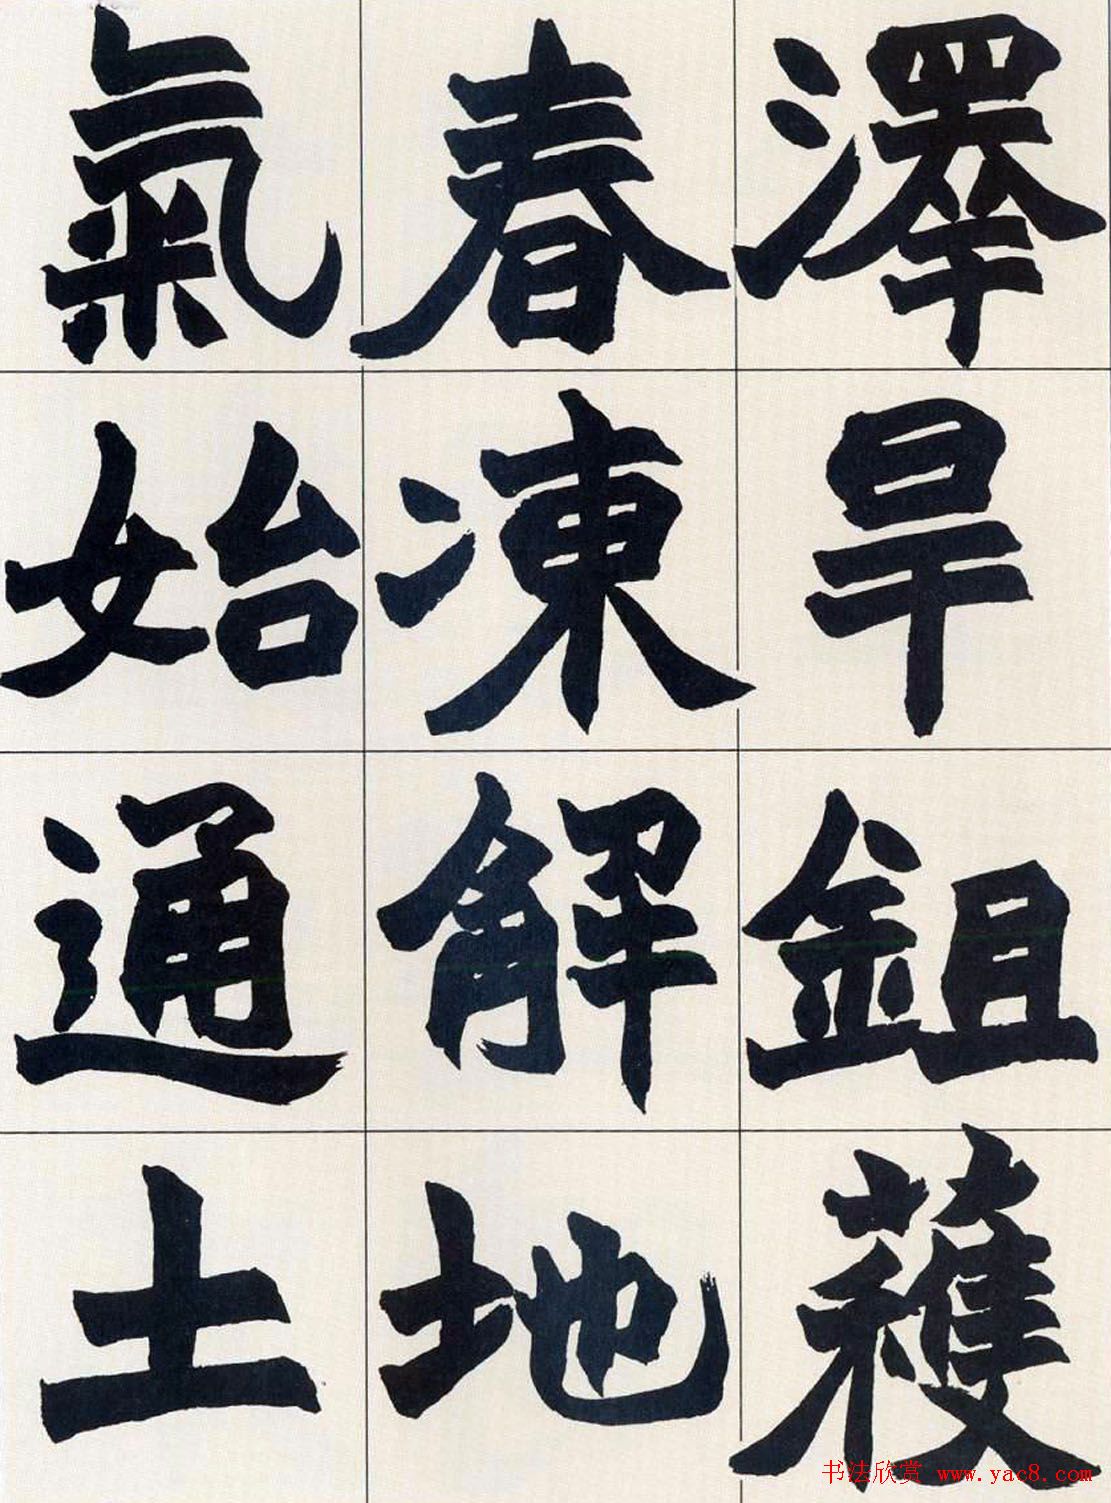 澤旱鉏穫
春凍解地
氣始通土
书法欣赏 www.yac8.com